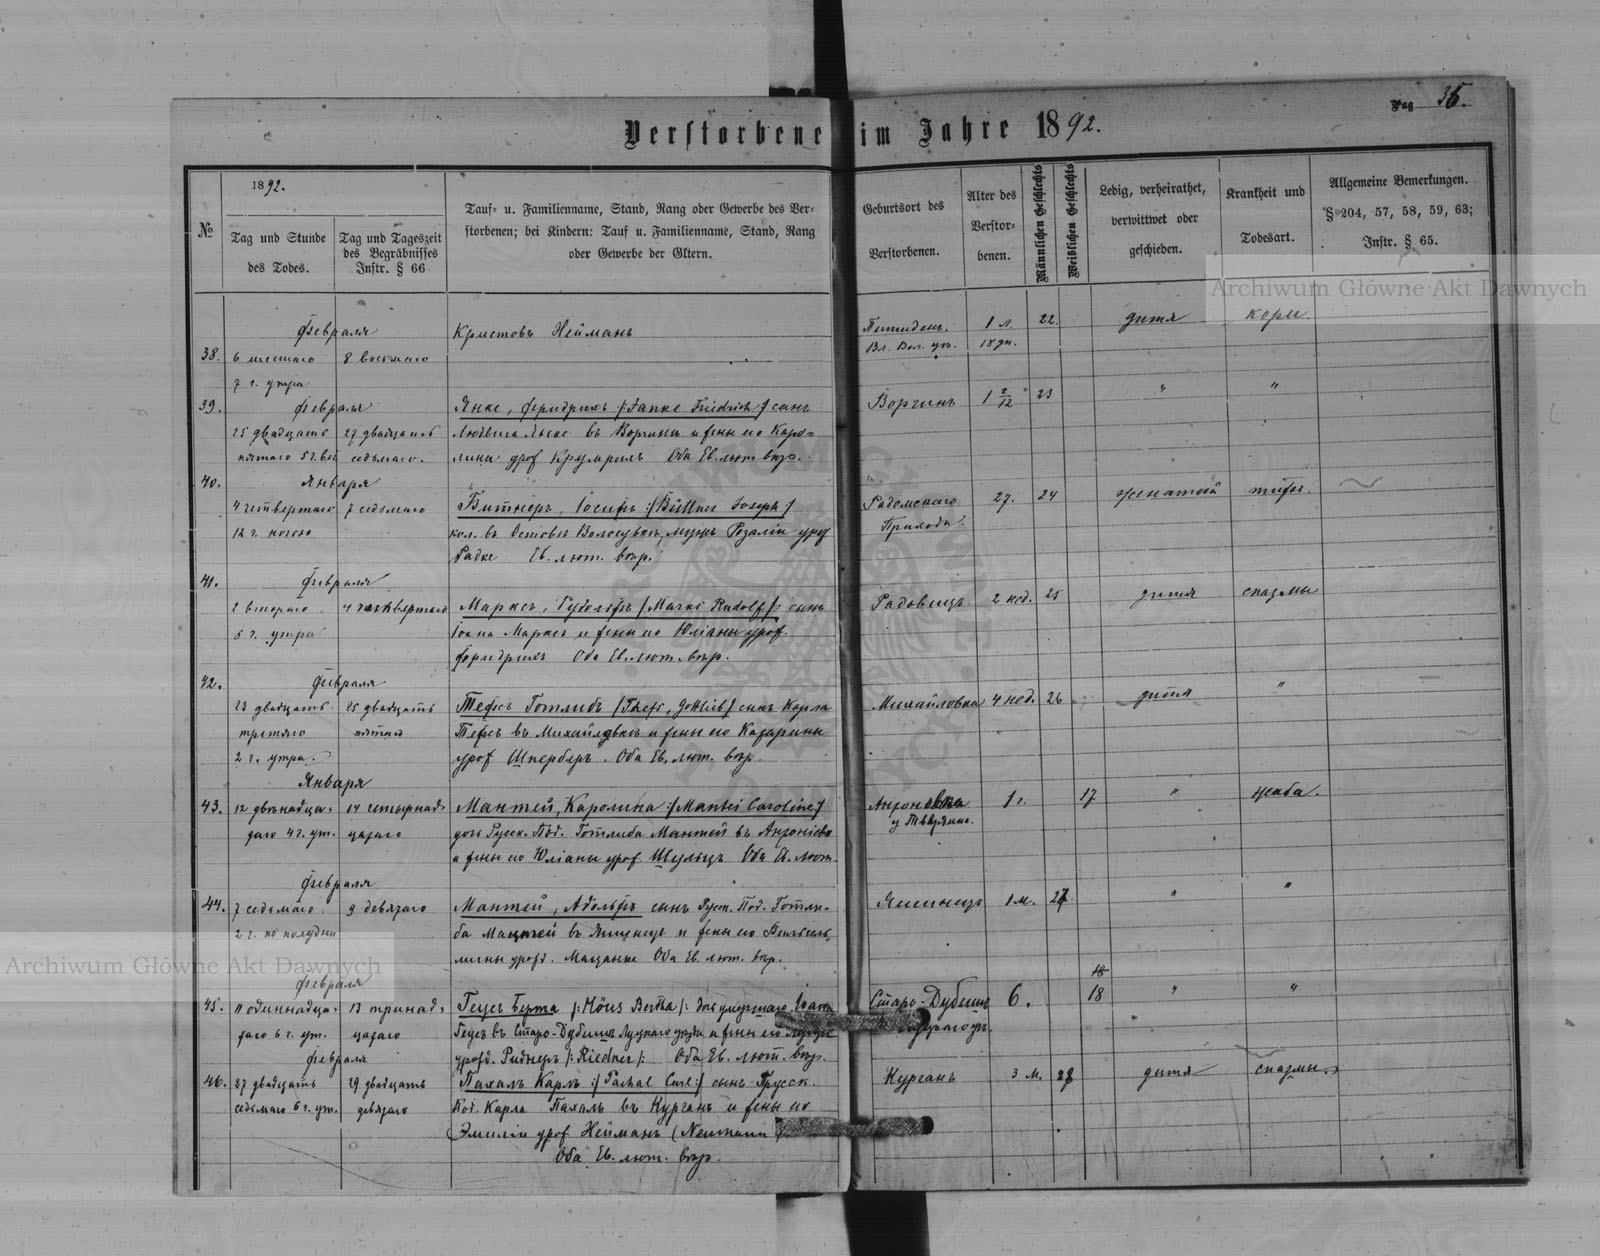 Pag 35.
Verstorbene im Jahre 1892.
№
1892.
Tag und Stunde
des Todes.
Tag und Tageszeit
des Begräbnisses
Instr. § 66
Tauf- u. Familienname, Stand, Rang oder Gewerbe des Ver-
storbenen; bei Kindern: Tauf u. Familienname, Stand, Rang
oder Gewerbe der Eltern.
Geburtsort des
Verstorbenen.
Alter des
Verstor-
benen.
Männlichen Geschlechts
Weiblichen Geschlechts
Ledig, verheirathet,
verwittwet oder
geschieden.
Krankheit und
Todesart.
Allgemeine Bemerkungen.
§ 204, 57, 58, 59, 63;
Instr. § 65.
Archiwum Główne Akt Dawnych
Февраля
Кристовъ Нейманъ
1 л. 22. дитя
Вл. Вол. 18 дн.
38. 6 шестаго 8 восьмаго
7 г. утра
39. Февраля
Янке, Фридрихъ /: Janke Friedrich / сынъ
Ворчинъ 1 2/12 23 " "
25 двадцать 27 двадцать
Людвига Янке въ Ворчинъ и жены его Каро=
пятаго 5 г. седьмаго.
лины Оба Ев. лют. вѣр.
40. Января
4 четвертаго 7 седьмаго
Битнеръ, Іосифъ :/ Büttner Joseph :/
Радомскаго 27. 24 женатый тифъ.
Прихода
12 г. ночью
кол. въ мужъ Розаліи
Радке Ев. лют. вѣр.
41. Февраля
2 втораго 4 четвертаго
Марксъ, Рудольфъ / Marks Rudolf /: сынъ
2 нед. 25 дитя спазмы
5 г. утра
Іоана Марксъ и жены его Юліаны урож.
Фридрихъ Оба Ев. лют. вѣр.
42. Февраля
23 двадцать 25 двадцать
Тефсъ Готлибъ / Thefs, Gottlieb / сынъ Карла
Михайловка 4 нед. 26 дитя "
третяго пятаго
Тефсъ въ Михайловкѣ и жены его
2 г. утра.
урож Шперберъ. Оба Ев. лют. вѣр.
Января
43. 12 двѣнадца- 14 четырнад-
Мантей, Каролина :/ Mantei Caroline /
1 г. 17 " жаба.
даго 4 г. ут. цатаго
дочь Русск. Под. Готлиба Мантей въ
и жены его Юліаны урож Шульцъ Оба Ев. лют.
Февраля
44. 7 седьмаго. 9 девятаго
Мантей, Адольфъ сынъ Русск. Под. Готли-
Яминецъ 1 м. 27 " "
2 г. по полудни
ба Мантей въ и жены его Вильгель-
Оба Ев. лют. вѣр.
Archiwum Główne Akt Dawnych
Февраля
18
45. 11 одиннадца- 13 тринад-
Геусъ Берта /: Höus Bertha /: дочь умершаго Іоана
Старо-Дубищъ 6. 18 " "
таго 6 г. ут. цатаго
Геусъ въ Старо-Дубищъ Луцкаго уѣзда и жены его
Февраля
урожд. Риднеръ /: Riedner /: Оба Ев. лют. вѣр.
46. 27 двадцать 29 двадцать
Пахалъ Карлъ :/ Pachal Carl :/ сынъ Прусск.
Курганъ 3 м. 28 дитя спазмы
седьмаго 6 г. ут. девятаго
Под. Карла Пахалъ въ Курганъ и жены его
Эмиліи урож Нейманъ ( Neumann
Оба Ев. лют. вѣр.